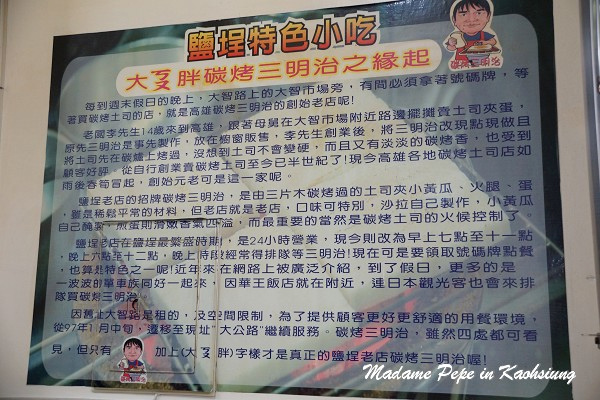 鹽埕特色小吃
大ㄡ胖碳烤三明治之緣起
碳烤三明治
每到週末假日的晚上，大智路上的大智市場旁，有間必須拿著號碼牌，等
著買碳烤土司的店，就是高雄碳烤三明治的創始老店呢!
老闆李先生14歲來到高雄，跟著母舅在大智市場附近路邊擺攤賣土司夾蛋，
原先三明治是事先製作，放在櫥窗販售，李先生創業後，將三明治改現點現做且
將土司先在碳爐上烤過，沒想到土司不會變硬，而且又有淡淡的碳烤香，也受到
顧客好評。從自行創業賣碳烤土司至今已半世紀了!現今高雄各地碳烤土司店如
雨後春筍冒起，創始元老可是這一家呢。
鹽埕老店的招牌碳烤三明治，是由三片木碳烤過的土司夾小黃瓜、火腿、蛋
，雖是稀鬆平常的材料，但老店就是老店，口味可特別，沙拉自己製作，小黃瓜
自己醃漬，煎蛋則滑嫩香氣四溢，而最重要的當然是碳烤土司的火候控制了。
鹽埕老店在鹽埕最繁盛時期，是24小時營業，現今則改為早上七點至十一點
，晚上六點至十二點，晚上時段經常得排隊等三明治!現在可是要領取號碼牌點餐
，也算是特色之一呢!近年來在網路上被廣泛介紹，到了假日，更多的是
一波波的單車族同好一起來，因華王飯店就在附近，連日本觀光客也會來排
隊買碳烤三明治。
因舊址大智路是租的，及空間限制，為了提供顧客更好更舒適的用餐環境，
從97年1月中旬，遷移至現址"大公路"繼續服務。碳烤三明治，雖然四處都可看
見，但只有 加上(大ㄡ胖)字樣才是真正的鹽埕老店碳烤三明治喔!
Madame Pepe in Kaohsiung